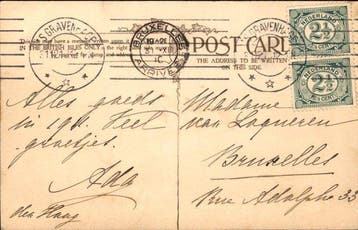 'S GRAVENHAGE
BRUXELLES
ARRIVEE
IN THE BRITISH ISLES ONLY
POST CARD
THE ADDRESS TO BE WRITTEN
ON THIS SIDE.
NEDERLAND
2½
CENT
NEDERLAND
2½
CENT
Alles goeds
in 1911. Veel
groetjes.
Ada
den Haag
Madame
van Laqueren
Bruxelles
Rue Adolphe 33